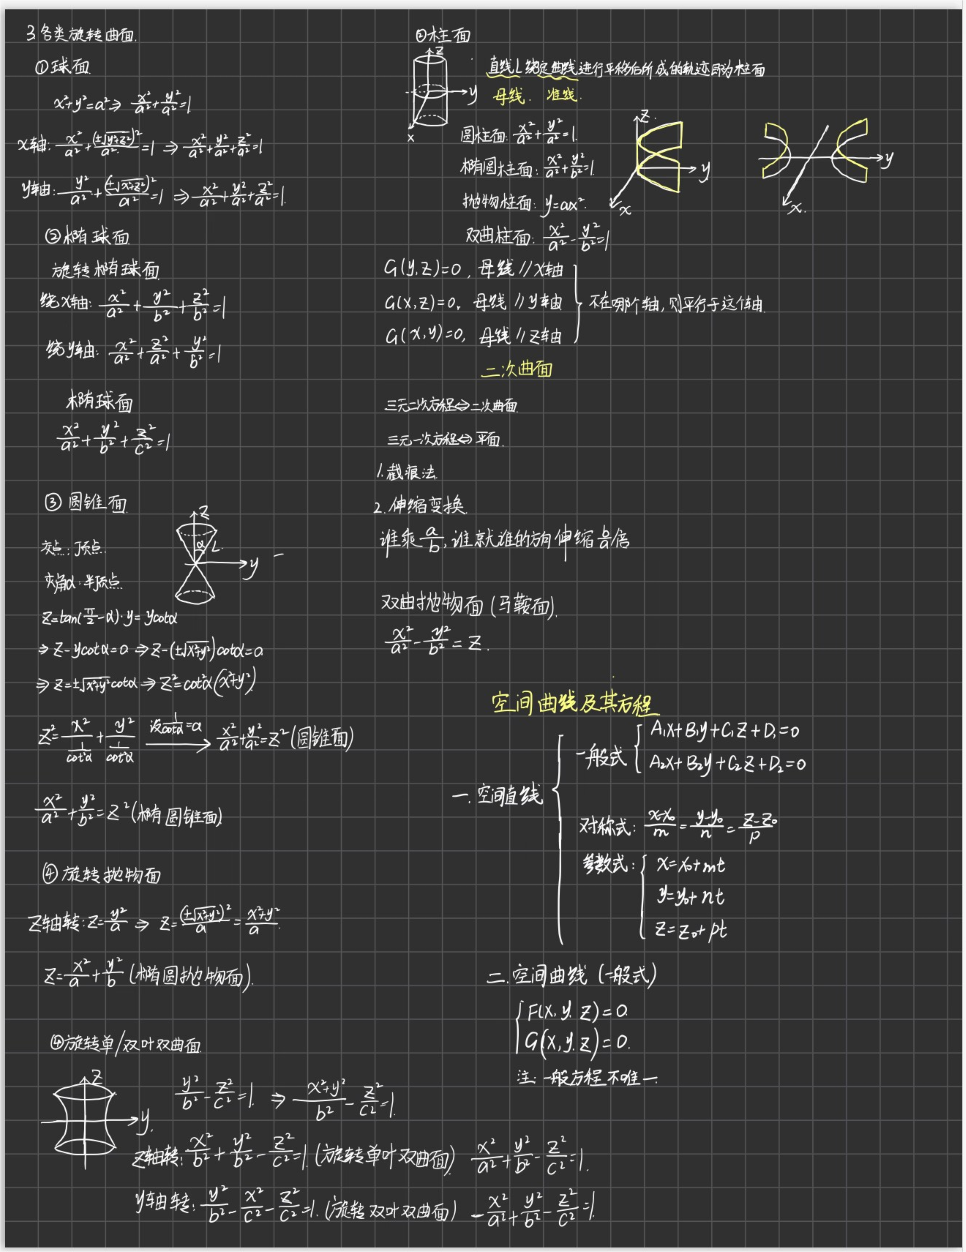 3.各类旋转曲面.
①球面
x²+y²=a² ⇒ x²/a²+y²/a²=1
x轴: x²/a²+(±√(y²+z²))²/a²=1 ⇒ x²/a²+y²/a²+z²/a²=1
y轴: y²/a²+(±√(x²+z²))²/a²=1 ⇒ x²/a²+y²/a²+z²/a²=1
②椭球面
旋转椭球面
绕x轴: x²/a²+y²/b²+z²/b²=1
绕y轴: x²/a²+z²/a²+y²/b²=1
椭球面
x²/a²+y²/b²+z²/c²=1
③圆锥面
z
α L
y
交点:顶点
夹角α:半顶点
z=tan(π/2-α)·y=ycotα
⇒z-ycotα=0 ⇒z-(±√(x²+y²))cotα=0
⇒z=±√(x²+y²)cotα ⇒z²=cot²α(x²+y²)
z²=x²/(1/cot²α)+y²/(1/cot²α) 设1/cotα=a → x²/a²+y²/a²=z²(圆锥面)
x²/a²+y²/b²=z²(椭圆锥面)
④旋转抛物面
z轴转:z=y²/a ⇒ z=(±√(x²+y²))²/a=(x²+y²)/a
z=x²/a+y²/b(椭圆抛物面).
④旋转单/双叶双曲面
z
y.
y²/b²-z²/c²=1. ⇒ (x²+y²)/b²-z²/c²=1.
z轴转: x²/b²+y²/b²-z²/c²=1.(旋转单叶双曲面) x²/a²+y²/b²-z²/c²=1.
y轴转: y²/b²-x²/c²-z²/c²=1.(旋转双叶双曲面) -x²/a²+y²/b²-z²/c²=1
①柱面
z
y
x
直线L绕定曲线进行平移后所成的轨迹即为柱面
母线. 准线.
圆柱面: x²/a²+y²/a²=1.
椭圆柱面: x²/a²+y²/b²=1
抛物柱面: y=ax².
双曲柱面: x²/a²-y²/b²=1
z
y
x
y
x.
G(y,z)=0, 母线∥x轴
G(x,z)=0, 母线∥y轴
G(x,y)=0, 母线∥z轴
不在哪个轴,则平行于这个轴
二次曲面
三元二次方程⇔二次曲面
三元一次方程⇔平面.
1.截痕法
2.伸缩变换
谁乘a/b,谁就谁的方向伸缩b/a倍
双曲抛物面(马鞍面).
x²/a²-y²/b²=z.
空间曲线及其方程
一.空间直线
一般式 { A₁x+B₁y+C₁z+D₁=0
A₂x+B₂y+C₂z+D₂=0
对称式: (x-x₀)/m=(y-y₀)/n=(z-z₀)/p
参数式: { x=x₀+mt
y=y₀+nt
z=z₀+pt
二.空间曲线(一般式)
{ F(x,y,z)=0.
G(x,y,z)=0.
注:一般方程不唯一.